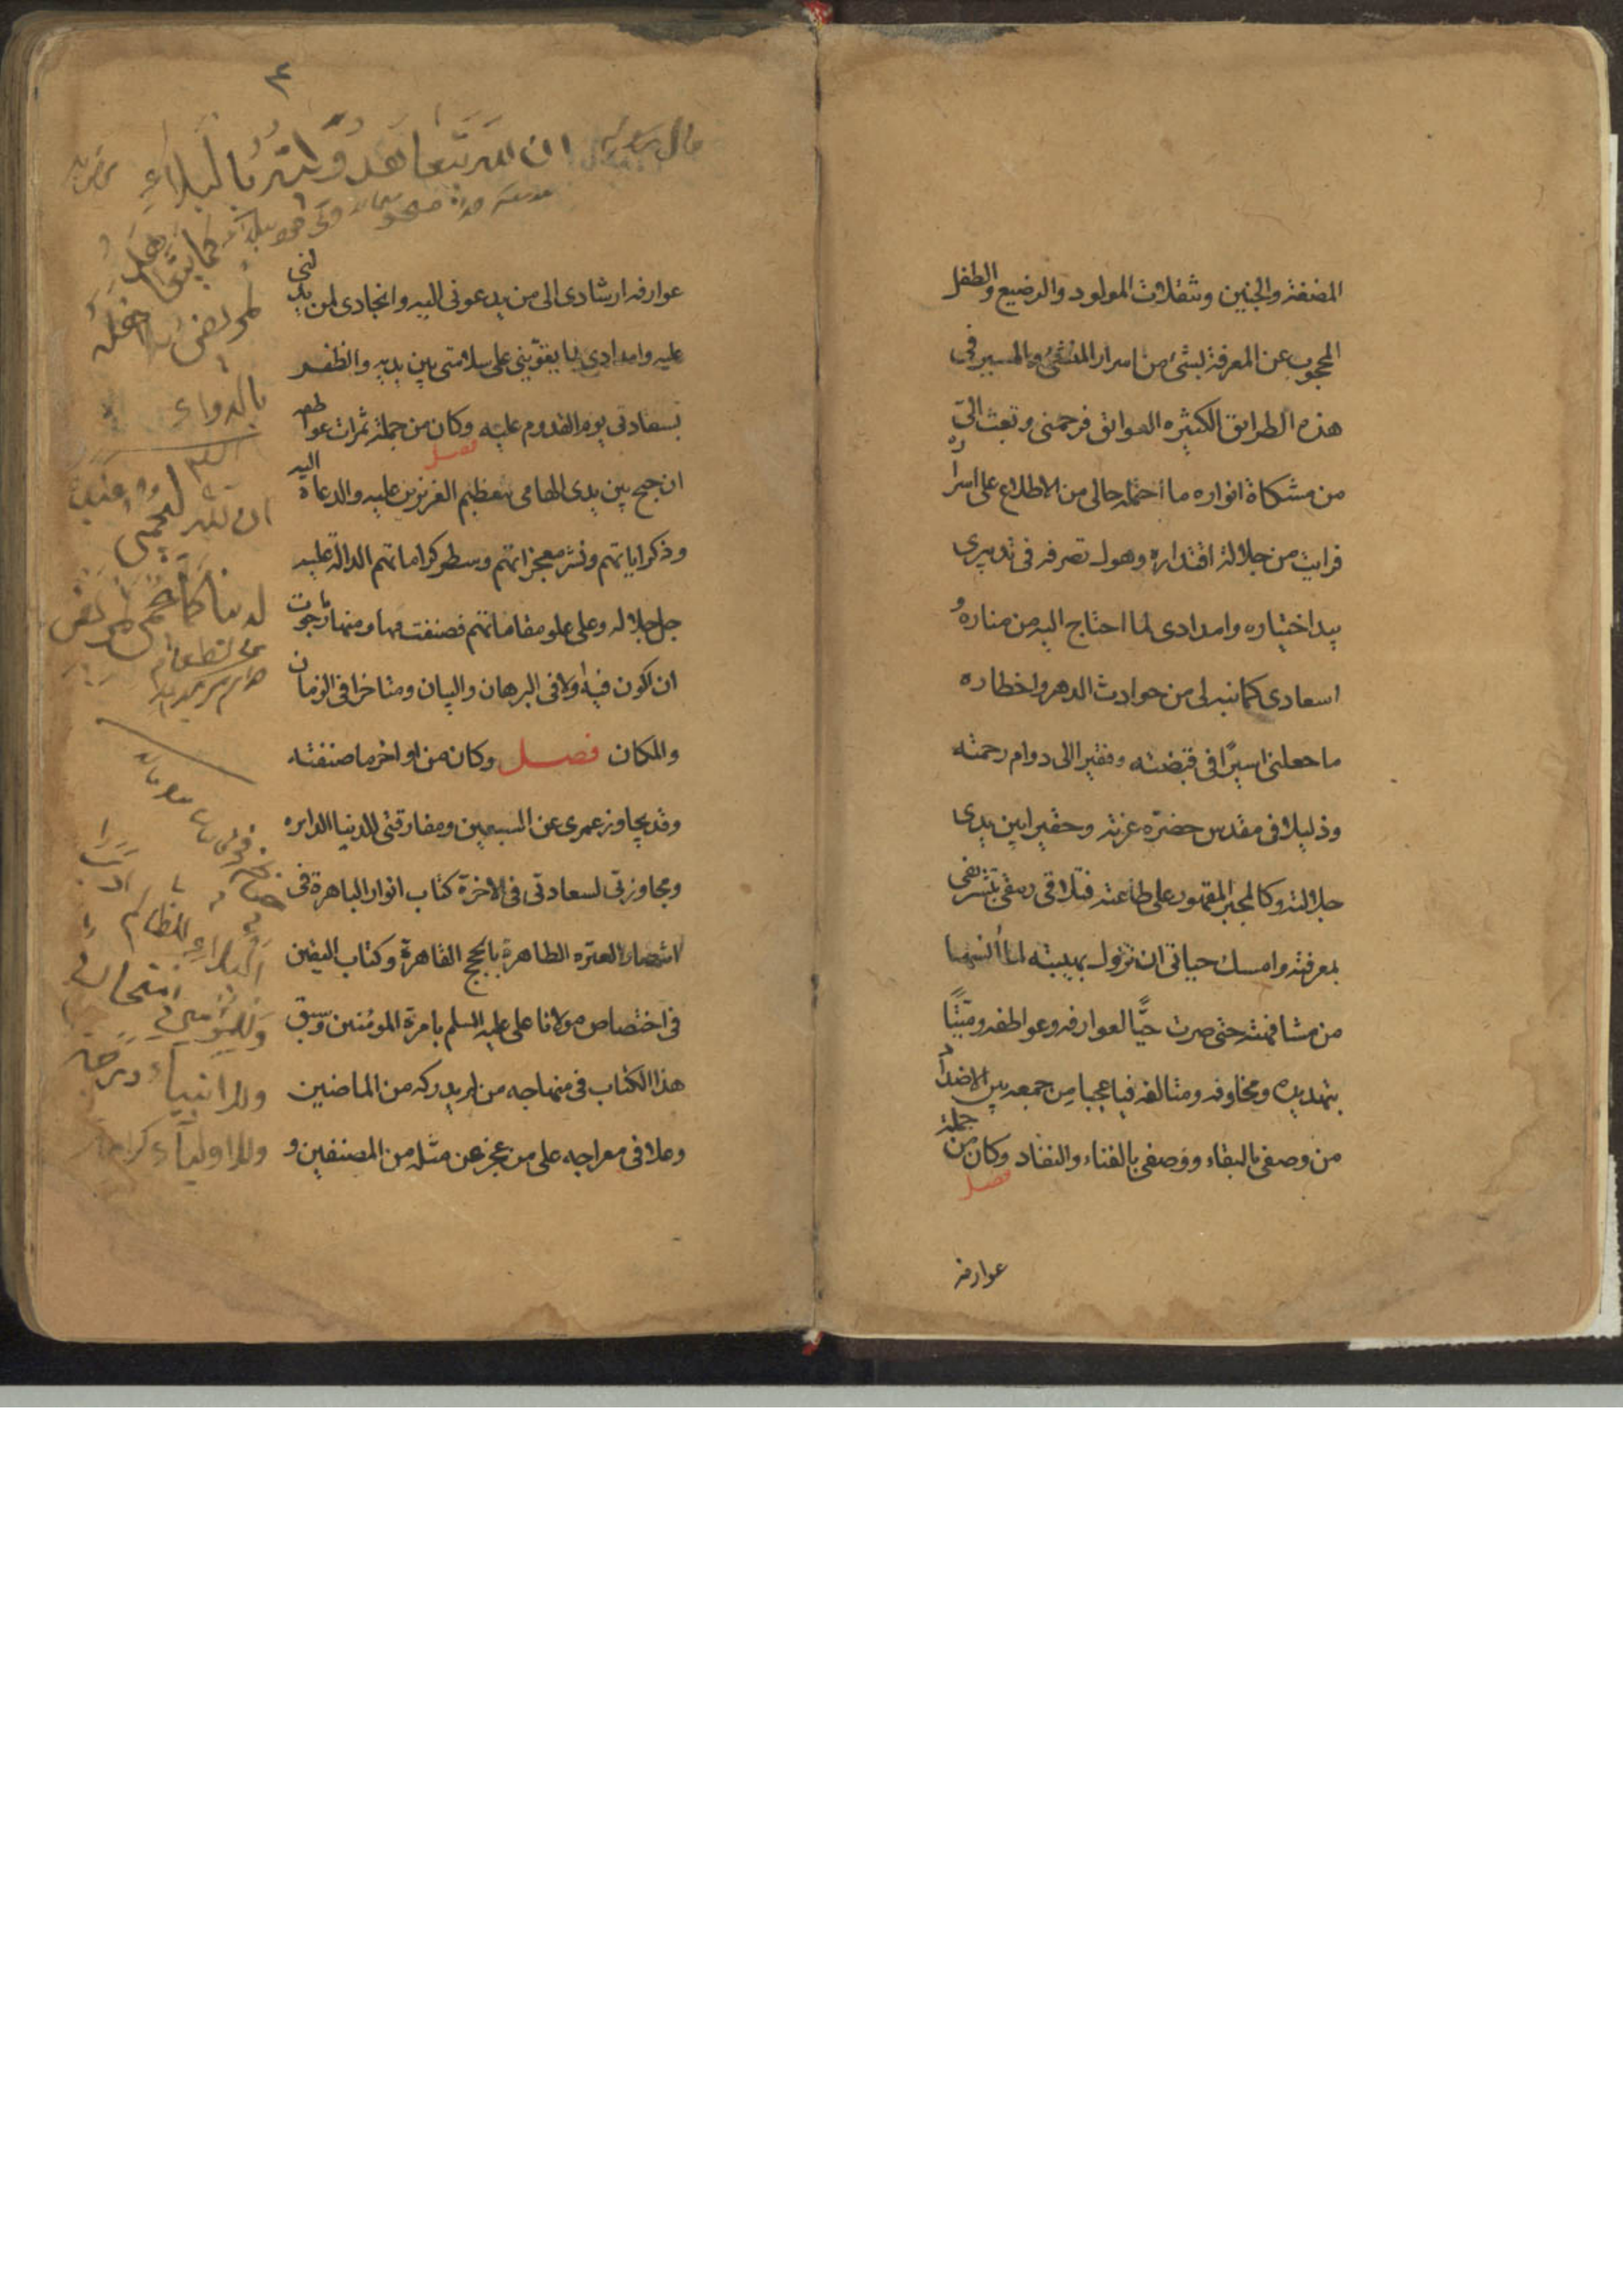 المضغة والجنين وتنقلات المولود والرضيع والطفل
المحجوب عن المعرفة بشئ من اسرار المنشئ والمسير فى
هذه الطرايق الكثيره العوايق فرحمنى وبعث الىّ
من مشكاة انواره ما احتمله حالى من الاطلاع على اسراره
فرايت من جلالة اقتداره وهول تصرفه فى تدبيرى
بيد اختياره وامدادى لما احتاج اليه من مناره و
اسعادى كما نبه لى من حوادث الدهر واخطاره
ما جعلنى اسيرًا فى قبضته وفقيرا الى دوام رحمته
وذليلا فى مقدس حضرة عزته وحقيرا بين يدى
جلالته وكالمجبر المقهور على طاعته فتلافى رمقى بتشريفى
بمعرفته وامسك حياتى ان تزول بهيبته لما آنسها
من مشافهته حتى صرت حيًّا لعوارفه وعواطفه وميتًا
بتهديده ومخاوفه ومتالفه فيا عجبا من جمعه بين الاضداد
من وصفى بالبقاء ووصفى بالفناء والنفاد وكان من جملة
فصل
عوارفه
عوارفه ارشادى الى من يدعونى اليه وانجادى لمن يدلنى
عليه وامدادى بما يقوينى على سلامتى بين يديه والظفر
بسعادتى يوم القدوم عليه وكان من جملة ثمرات عواطفه
فصل
ان جمع بين يدى الهامى تعظيم العزيزين عليه والدعاة اليه
وذكر اياتهم ونشر معجزاتهم وسطر كراماتهم الدالة عليه
جل جلاله وعلى علو مقاماتهم فصنفت منها ومنها ما رجوت
ان اكون فيه اولا فى البرهان والبيان ومتاخرا فى الزمان
والمكان فصل وكان من اواخر ما صنفته
وقد تجاوز عمرى عن السبعين ومفارقتى للدنيا الدايره
ومجاوزتى لسعادتى فى الاخرة كتاب انوار الباهرة فى
انتصار العتره الطاهرة بالحجج القاهرة وكتاب اليقين
فى اختصاص مولانا على عليه السلم بامرة المومنين وسبق
هذا الكتاب فى منهاجه من لم يدركه من الماضين
وعلا فى معراجه على من عجز عن مثله من المصنفين و
٤
ان الله يتعاهد وليه بالبلاء
كما يتعاهد
المريض اهله
بالدواء
ان الله ليحمى
الدنيا كما يحمى المريض
الطعام
البلاء للظالم ادب
وللمؤمن امتحان
وللانبياء درجة
وللاولياء كرامة